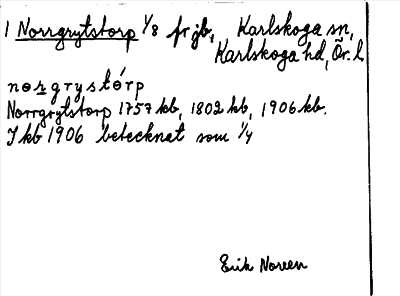 1 Norrgrytstorp 1/8 fr jb, Karlskoga sn,
Karlskoga hd, Ör. l.
norgrystórp
Norrgrytstorp 1757 kb, 1802 kb, 1906 kb.
I kb 1906 betecknat som 1/4
Erik Noreen